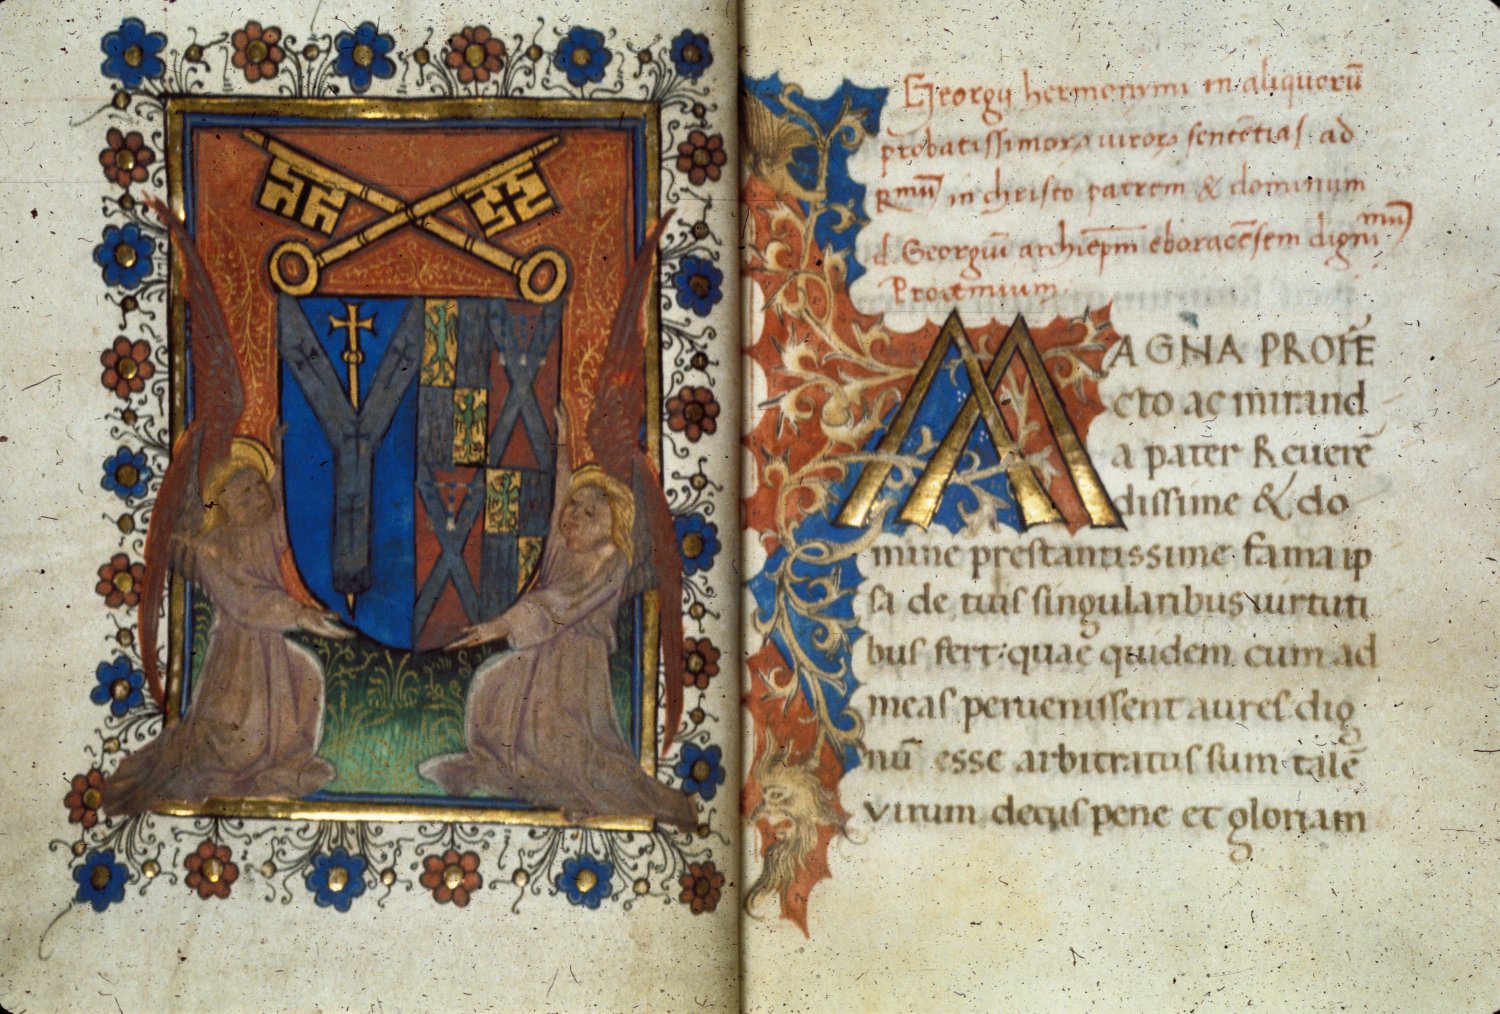 Georgij hermonymi in aliquorū
probatissimorꝝ uirorꝝ sentētias ad
Rmūm in christo patrem & dominum
d. Georgiū archiēpm̄ eboracēsem dignimūm
Proemium
MAGNA PROFE
cto ac mirand
a pater Reuerē
dissime & do
mine prestantissime fama ip
sa de tuis singularibus uirtuti
bus fert: quae quidem cum ad
meas peruenissent aures dig
nū esse arbitratus sum talē
virum decus pene et gloriam